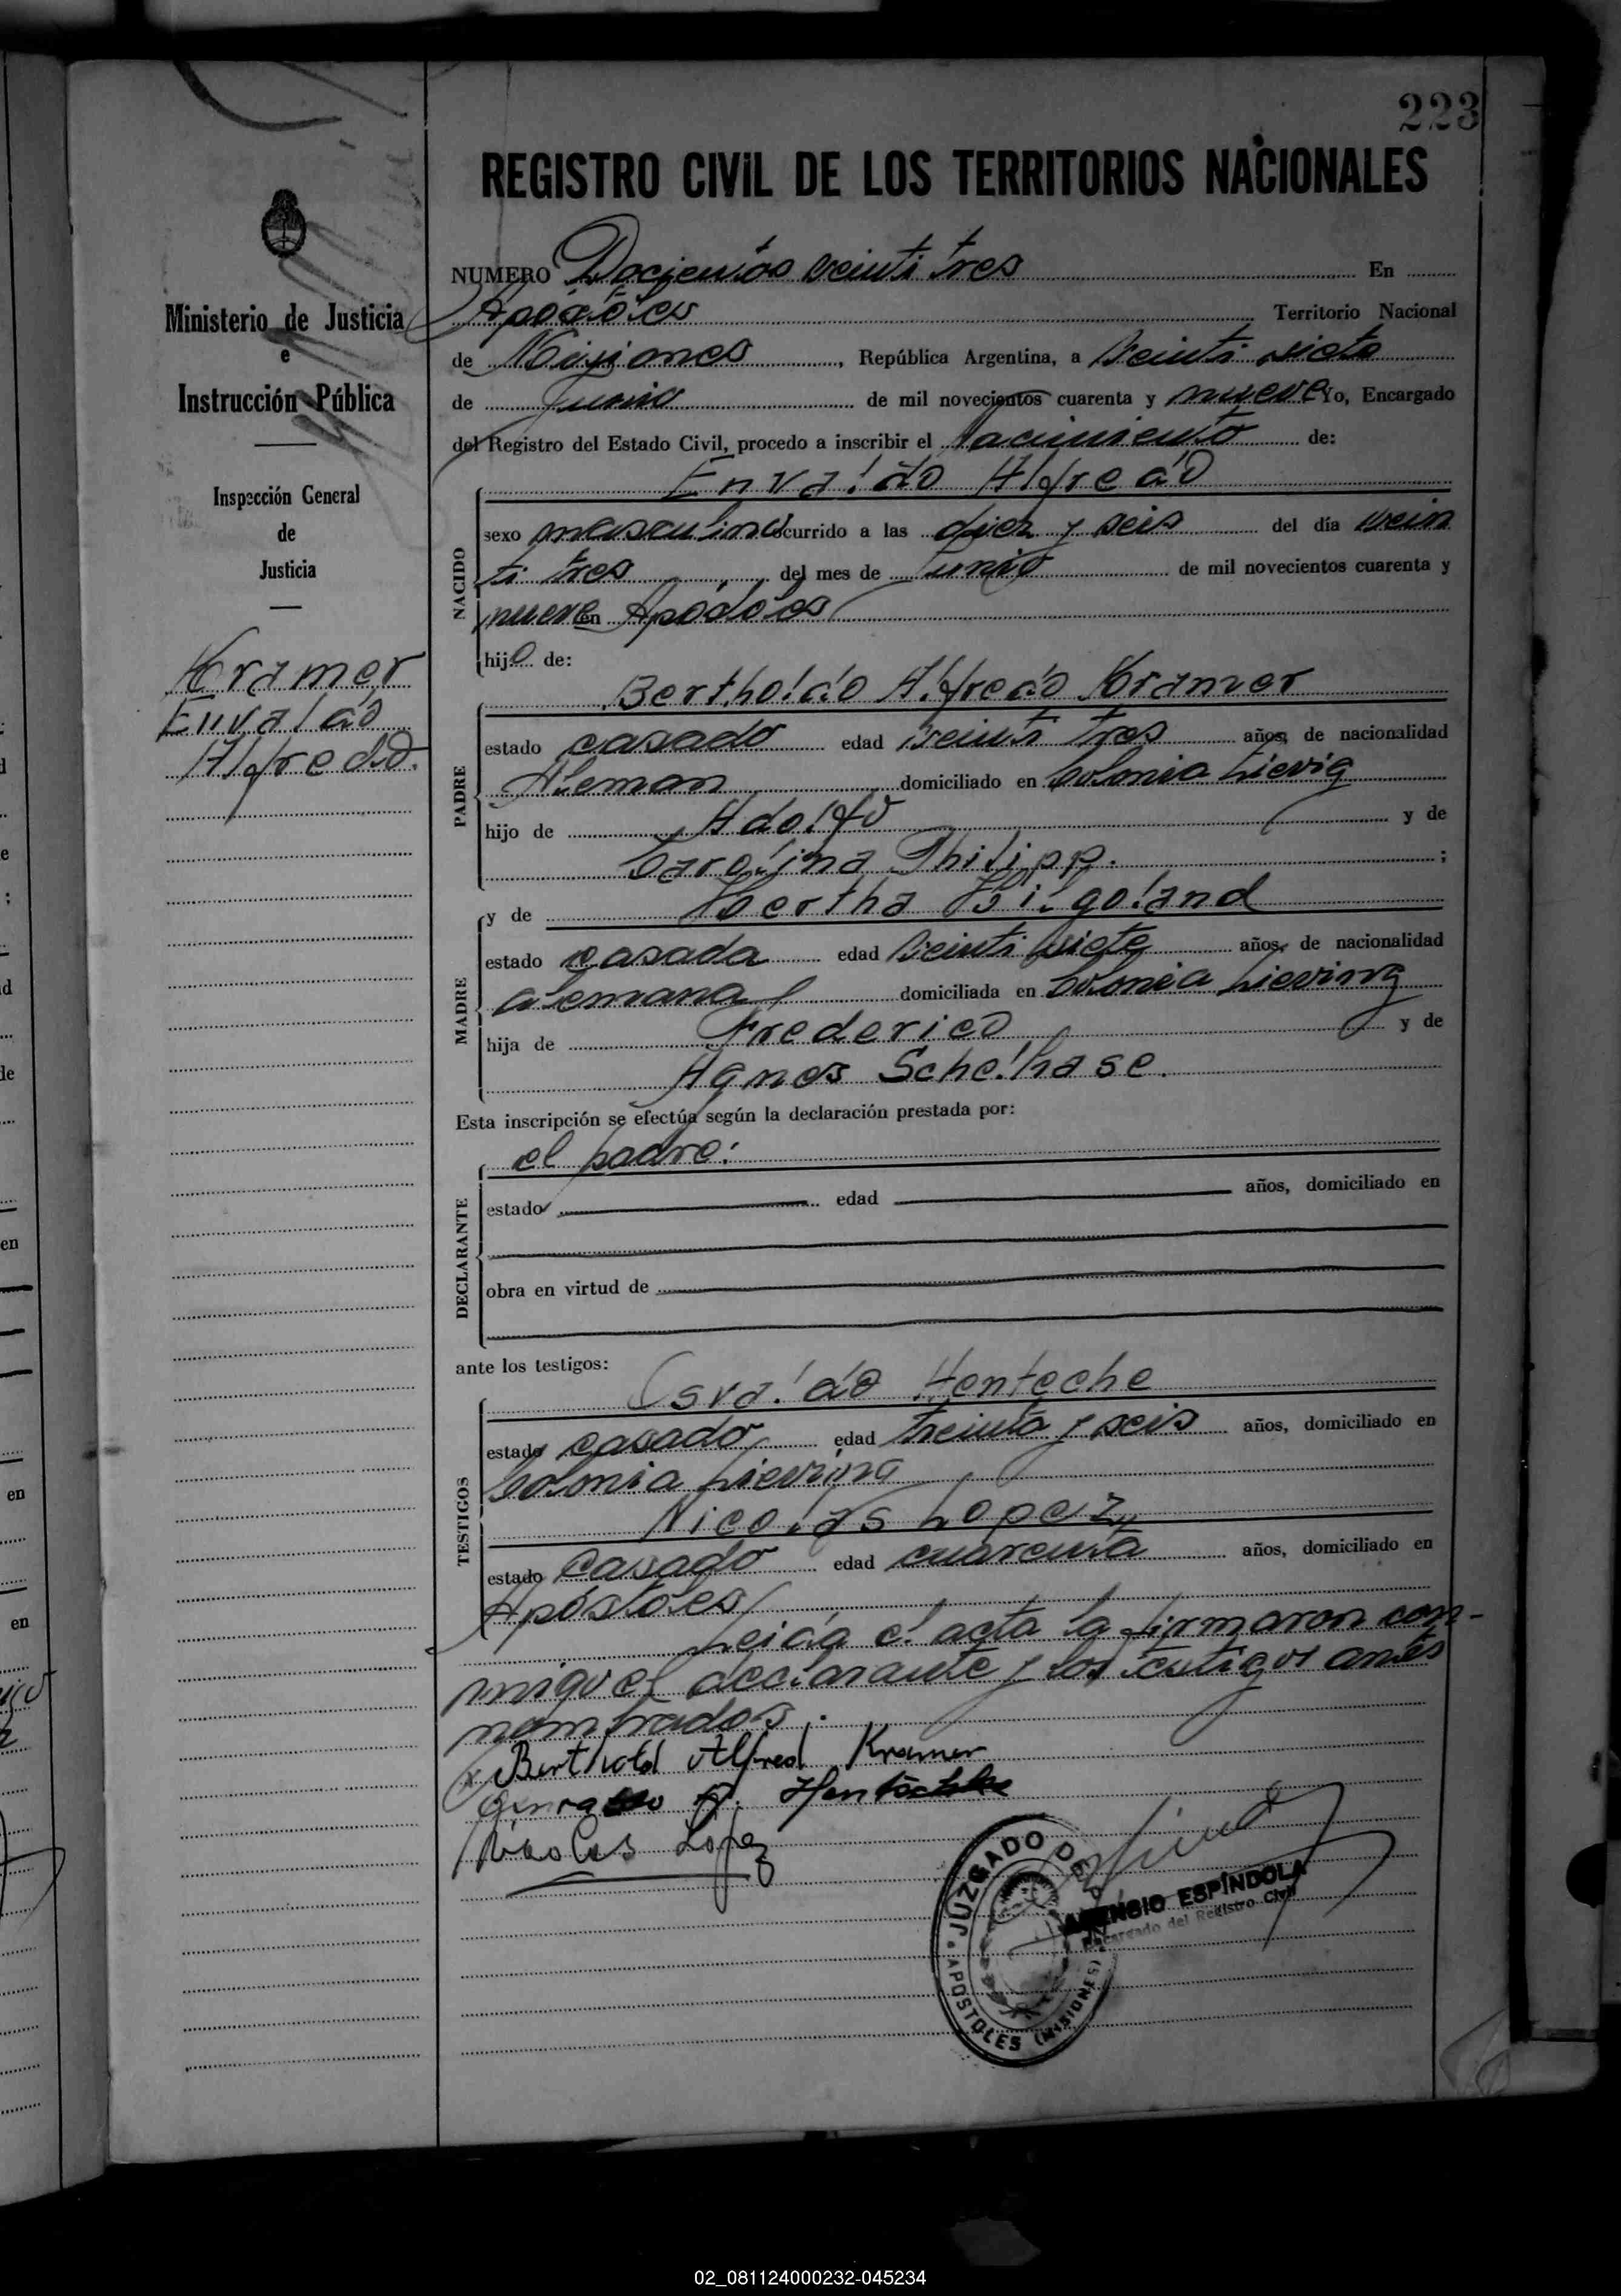 223
REGISTRO CIVIL DE LOS TERRITORIOS NACIONALES
Ministerio de Justicia
e
Instrucción Pública
Inspección General
de
Justicia
Kramer
Envaldo
Alfredo.
NUMERO Docientos veinti tres En
Apóstoles Territorio Nacional
de Misiones, República Argentina, a Veinti siete
de Junio de mil novecientos cuarenta y nueve Yo, Encargado
del Registro del Estado Civil, procedo a inscribir el Nacimiento de:
Envaldo Alfredo
NACIDO
sexo masculino ocurrido a las diez y seis del día vein
ti tres del mes de Junio de mil novecientos cuarenta y
nueve en Apóstoles
hijo de:
Bertholdo Alfredo Kramer
PADRE
estado casado edad veinti tres años, de nacionalidad
Aleman domiciliado en Colonia Lievig
hijo de Adolfo y de
Carolina Philipp. ;
y de Hertha Hilgoland
MADRE
estado casada edad veinti siete años, de nacionalidad
alemana domiciliada en Colonia Lieving
hija de Frederico y de
Agnes Schelhase.
Esta inscripción se efectúa según la declaración prestada por:
el padre:
DECLARANTE
estado edad años, domiciliado en
obra en virtud de
ante los testigos:
Osvaldo Henteche
TESTIGOS
estado casado edad treinta y seis años, domiciliado en
Colonia Lieving
Nicolás Lopez
estado casado edad cuarenta años, domiciliado en
Apóstoles
Leida el acta la firmaron con-
migo el declarante y los testigos antes
nombrados.
Berthold Alfred Kramer
Hentschke
Nicolas López
JUZGADO DE
APOSTOLES (MISIONES)
ASENSIO ESPÍNDOLA
Encargado del Registro Civil
02_081124000232-045234